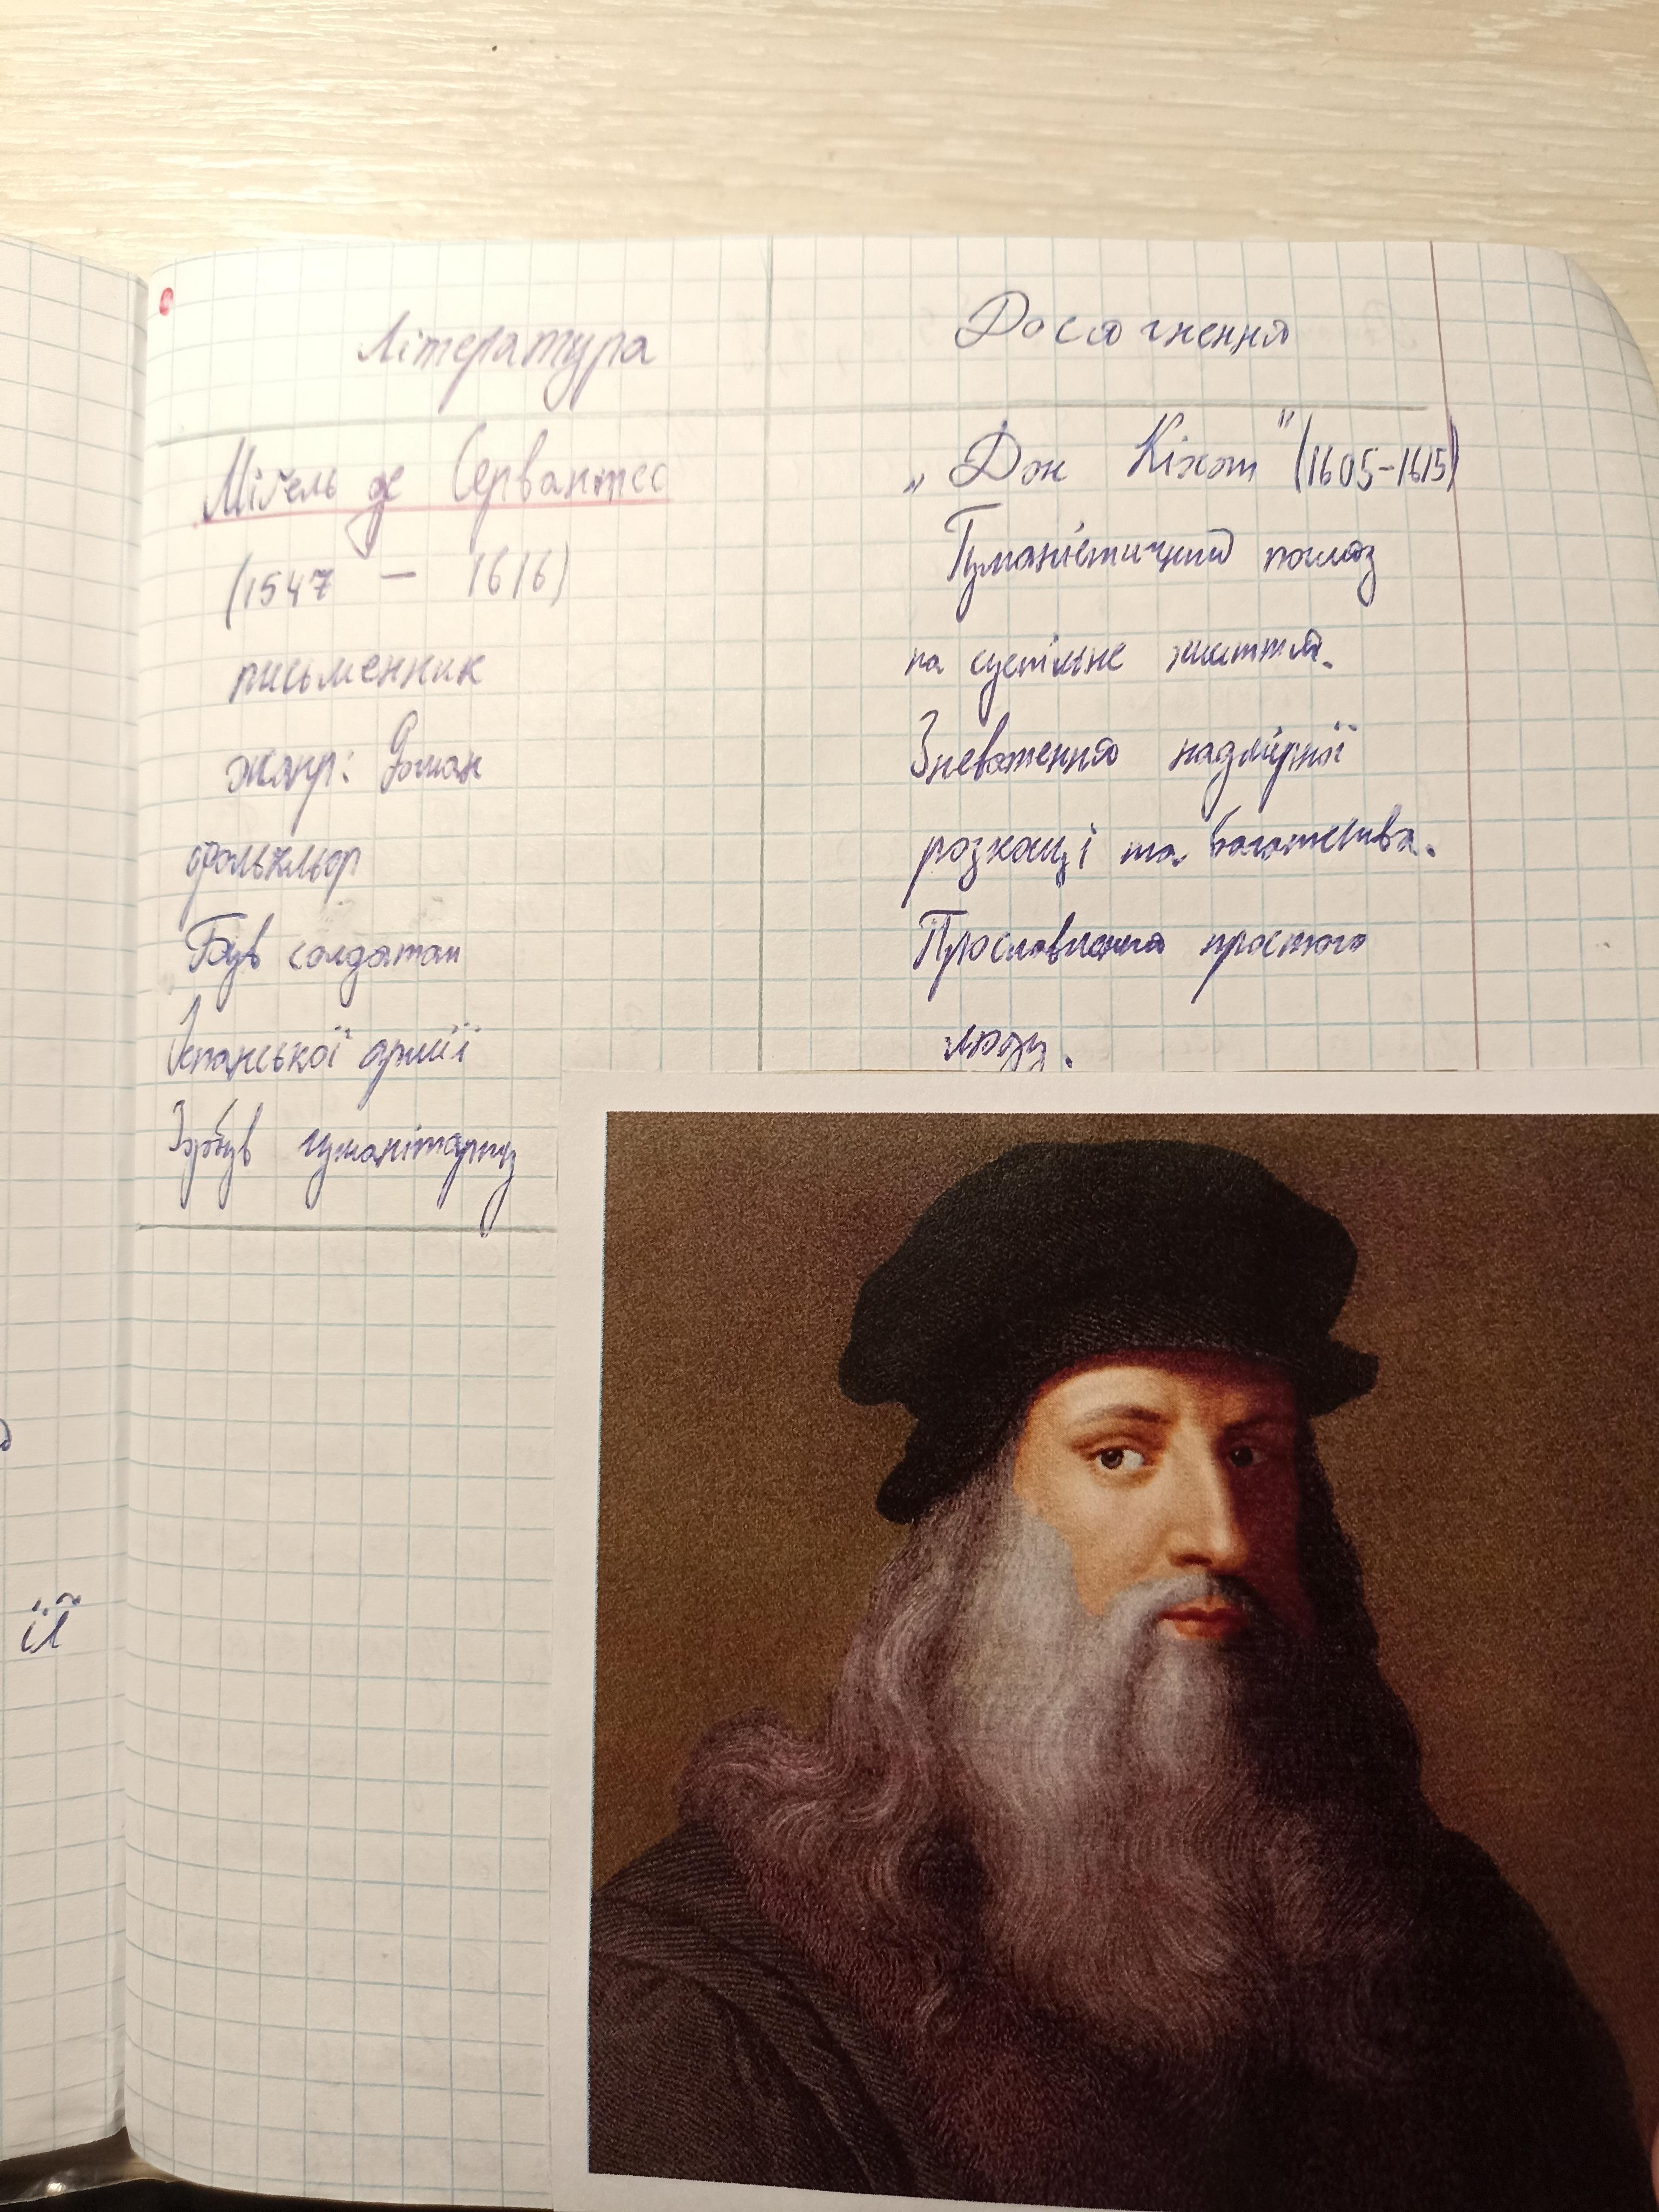 Література
Мігель де Сервантес
(1547 – 1616)
письменник
жанр: Роман
фольхльор
Був солдатом
Іспанської армії
Здобув гуманітарну
Досягнення
„Дон Кіхот" (1605-1615)
Гуманістичний погляд
на суспільне життя.
Зневаження надмірної
розкоші та багатства.
Прославлення простого
люду.
ії